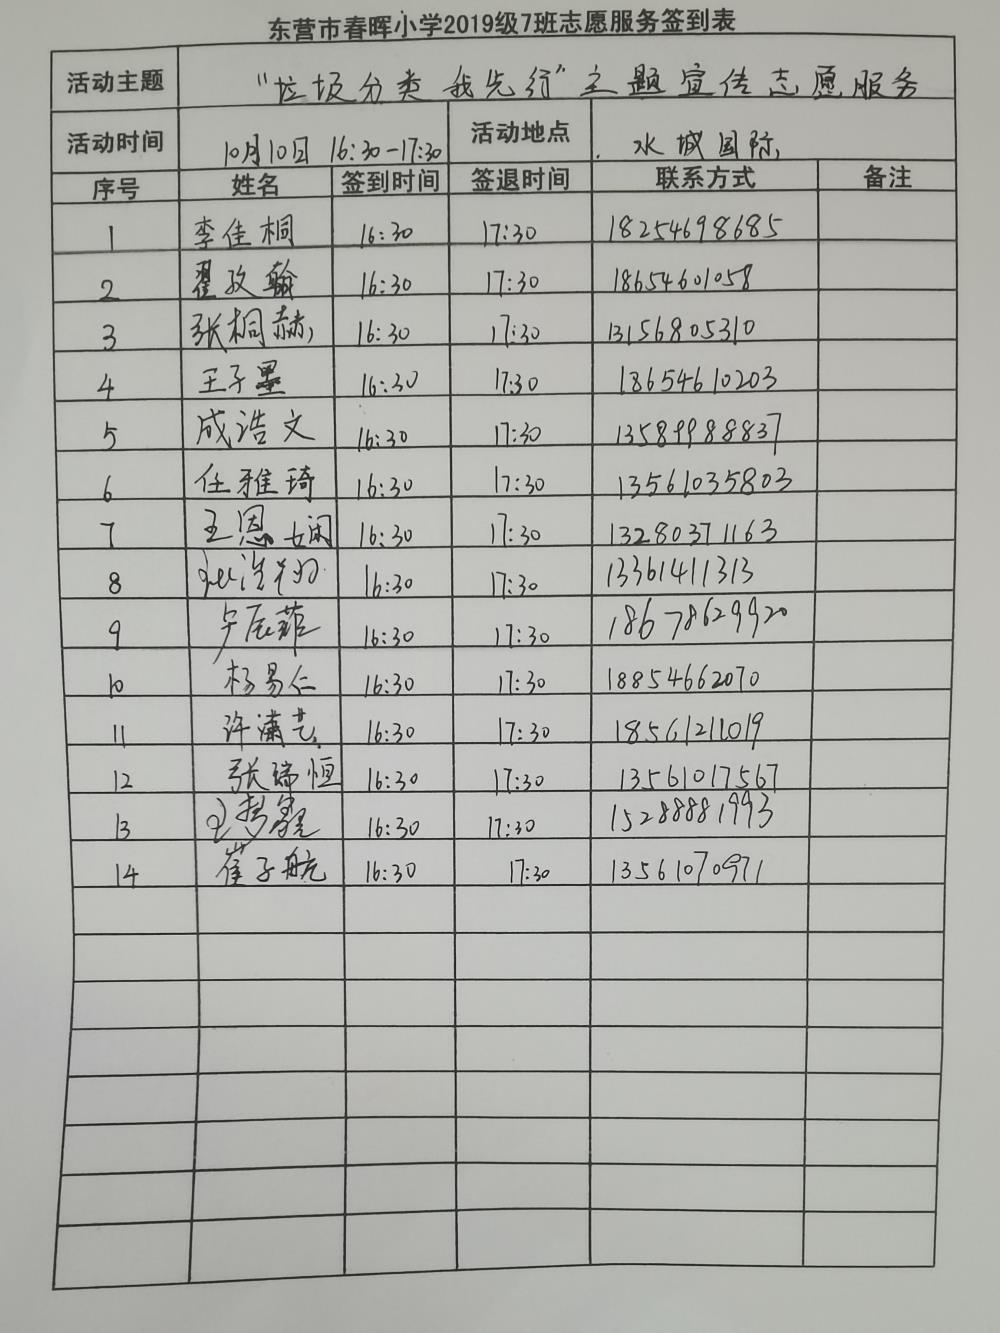 东营市春晖小学2019级7班志愿服务签到表
活动主题 “垃圾分类 我先行”主题宣传志愿服务
活动时间 10月10日 16:30-17:30 活动地点 水城国际
序号 姓名 签到时间 签退时间 联系方式 备注
1 李佳桐 16:30 17:30 18254698685
2 翟孜翰 16:30 17:30 18654601058
3 张桐赫 16:30 17:30 13156805310
4 王子墨 16:30 17:30 18654610203
5 成浩文 16:30 17:30 13589988837
6 任雅琦 16:30 17:30 13561035803
7 王恩娴 16:30 17:30 13280371163
8 16:30 17:30 13361411313
9 16:30 17:30 18678629920
10 杨易仁 16:30 17:30 18854662070
11 许潇艺 16:30 17:30 18561211019
12 张瑞恒 16:30 17:30 13561017567
13 16:30 17:30 15288881993
14 崔子航 16:30 17:30 13561070971